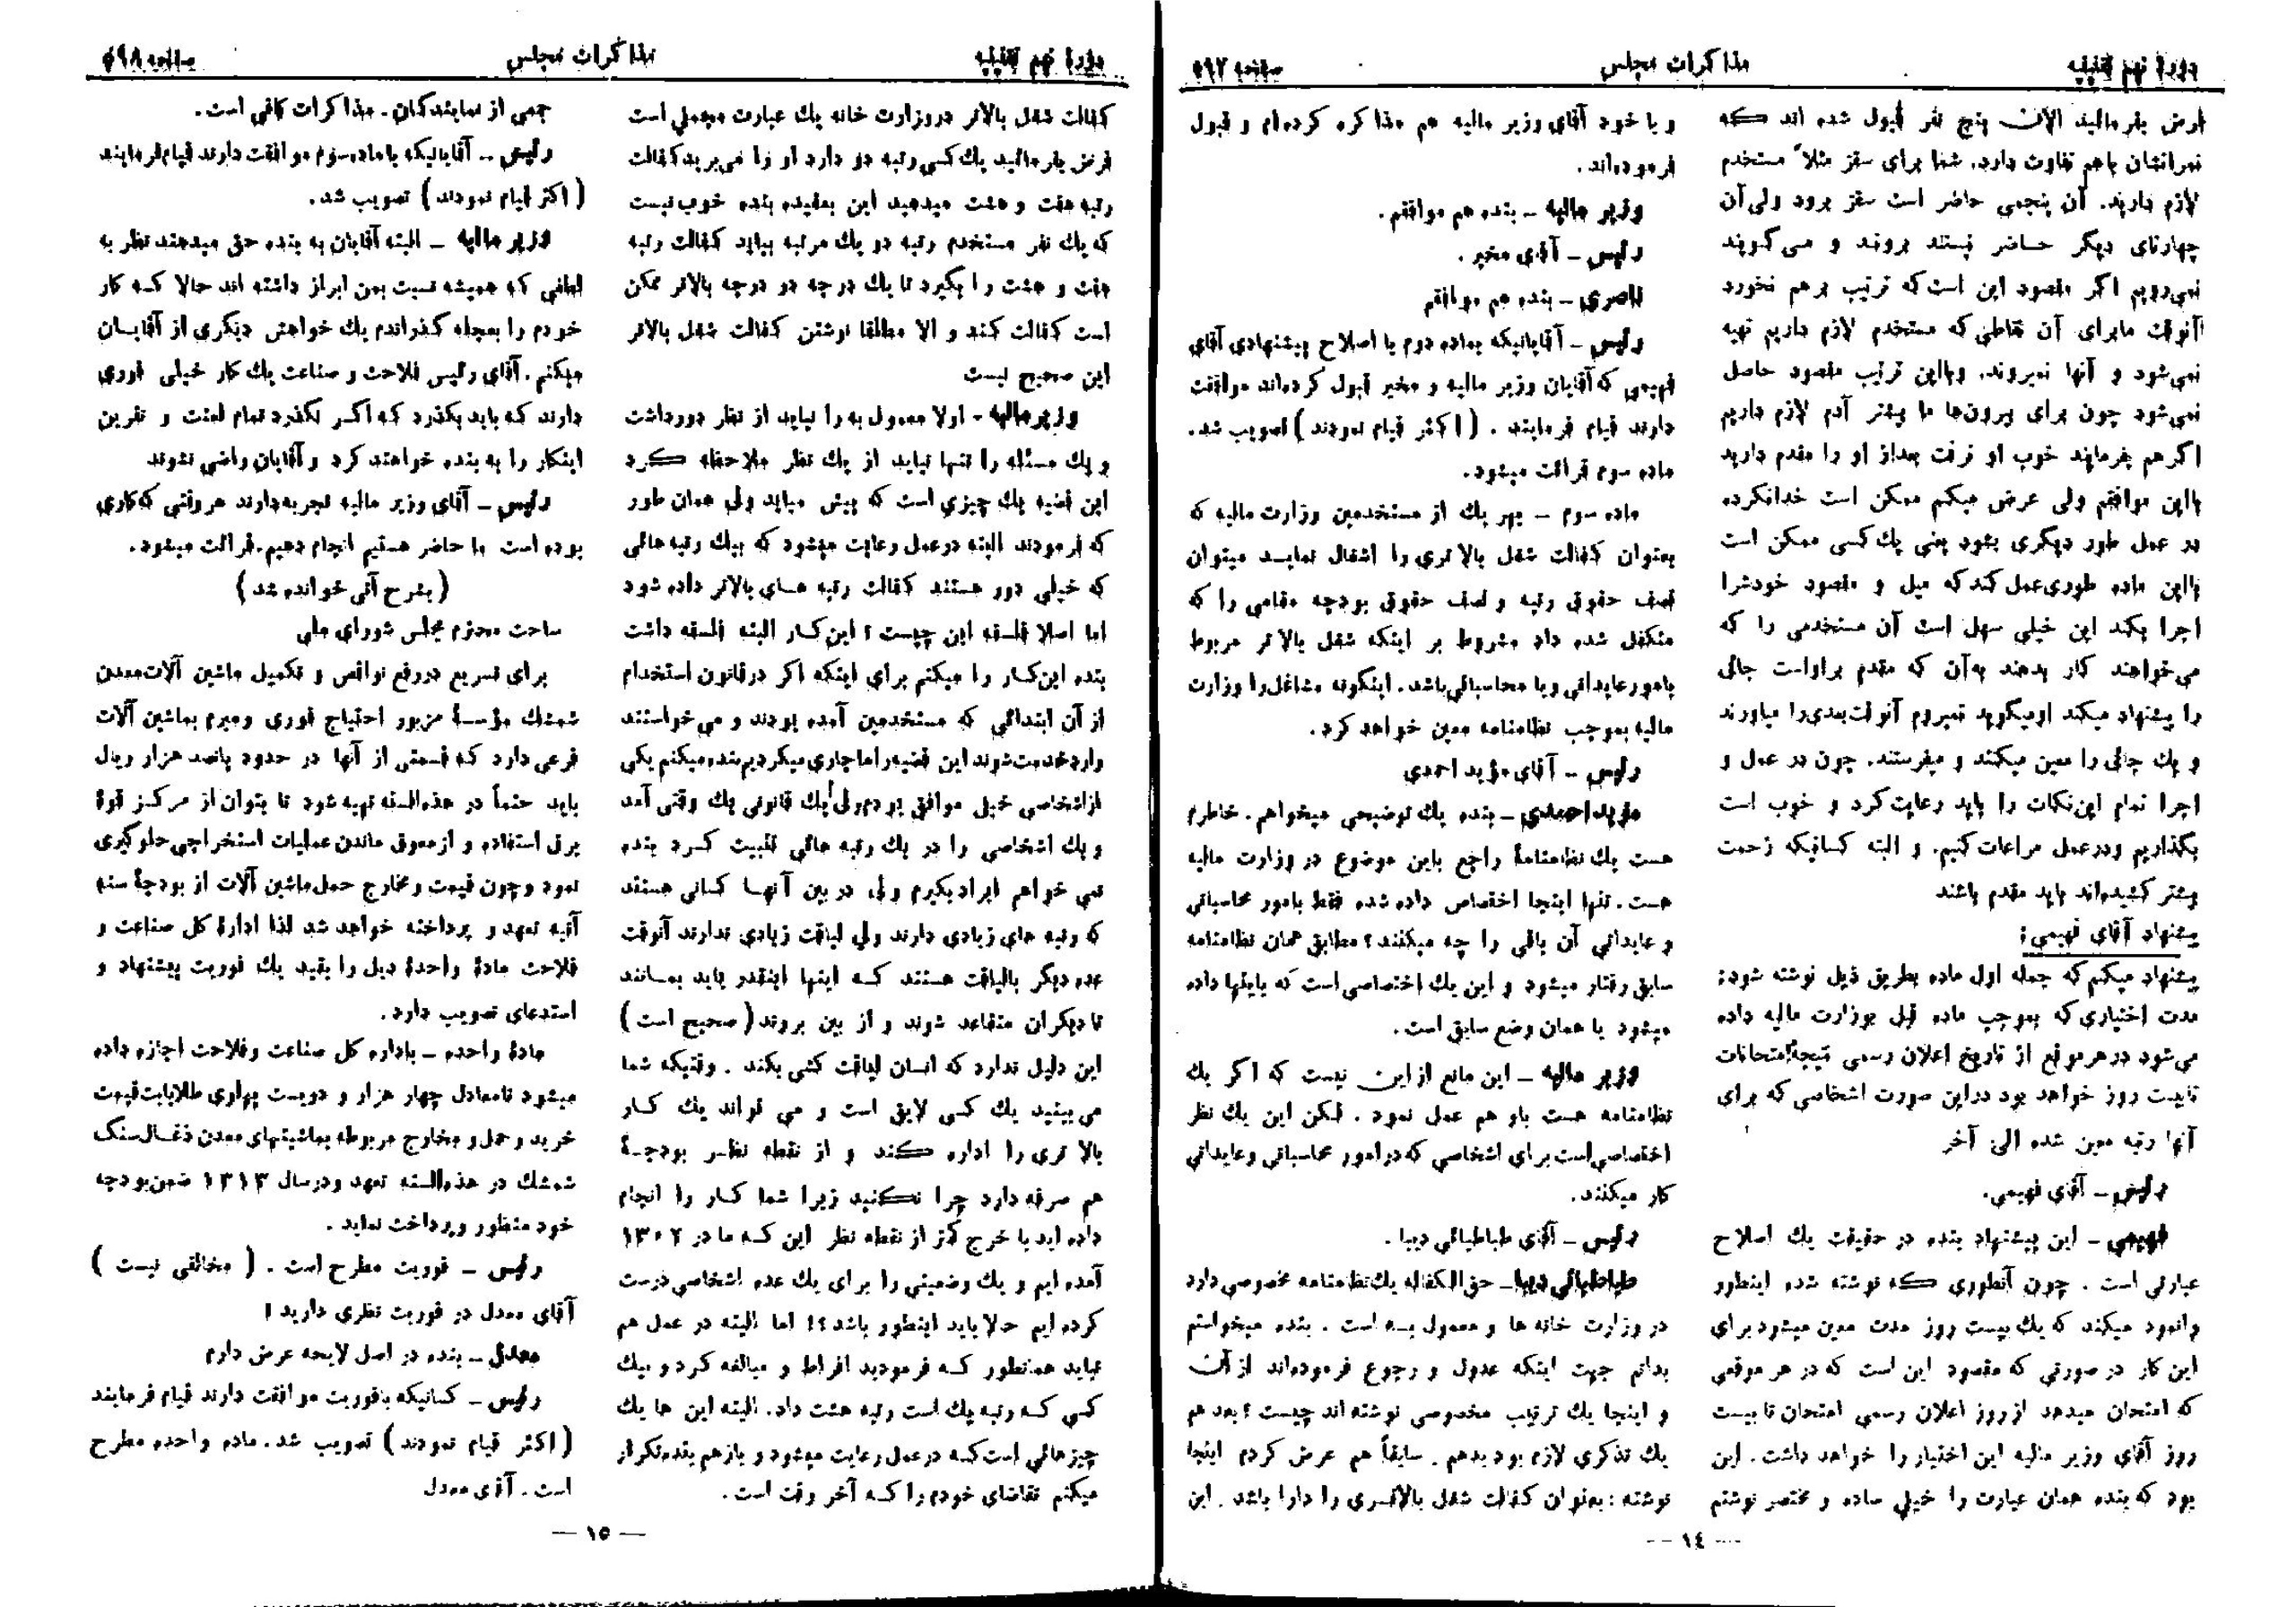 دوره نهم تقنینیه
مذاکرات مجلس
صفحه ۵۹۷
فرض بفرمائید الان پنج نفر قبول شده اند که
نمراتشان باهم تفاوت دارد. شما برای سقز مثلاً مستخدم
لازم دارید. آن پنجمی حاضر است سقز برود ولی آن
چهارتای دیگر حاضر نیستند بروند و می گویند
نمی‌رویم اگر مقصود این است که ترتیب بر هم نخورد
آنوقت ما برای آن نقاطی که مستخدم لازم داریم تهیه
نمی‌شود و آنها نمیروند. و با این ترتیب مقصود حاصل
نمی‌شود چون برای بیرون‌ها ما بیشتر آدم لازم داریم
اگر هم بفرمایند خوب او نرفت بعد از او را مقدم دارید
با این موافقم ولی عرض میکنم ممکن است خدانکرده
در عمل طور دیگری بشود یعنی یک کسی ممکن است
با این ماده طوری عمل کند که میل و مقصود خودش را
اجرا بکند این خیلی سهل است آن مستخدمی را که
می‌خواهند کار بدهند به آن که مقدم بر او است جائی
را پیشنهاد میکند او میگوید نمیروم آنوقت بعدی را میاورند
و یک جائی را معین میکنند و میفرستند. چون در عمل و
اجرا تمام این نکات را باید رعایت کرد و خوب است
بگذاریم و در عمل مراعات کنیم. و البته کسانیکه زحمت
بیشتر کشیده‌اند باید مقدم باشند
پیشنهاد آقای فهیمی:
پیشنهاد میکنم که جمله اول ماده بطریق ذیل نوشته شود:
مدت اختیاری که بموجب ماده قبل بوزارت مالیه داده
می‌شود در هر موقع از تاریخ اعلان رسمی نتیجهٔ امتحانات
تا بیست روز خواهد بود در این صورت اشخاصی که برای
آنها رتبه معین شده الی آخر
رئیس – آقای فهیمی.
فهیمی – این پیشنهاد بنده در حقیقت یک اصلاح
عبارتی است . چون آنطوری که نوشته شده اینطور
وانمود میکند که یک بیست روز مدت معین میشود برای
این کار در صورتی که مقصود این است که در هر موقعی
که امتحان میدهد از روز اعلان رسمی امتحان تا بیست
روز آقای وزیر مالیه این اختیار را خواهد داشت . این
بود که بنده همان عبارت را خیلی ساده و مختصر نوشتم
و با خود آقای وزیر مالیه هم مذاکره کرده‌ام و قبول
فرموده‌اند.
وزیر مالیه – بنده هم موافقم.
رئیس – آقای مخبر .
ناصری – بنده هم موافقم
رئیس – آقایانیکه بماده دوم با اصلاح پیشنهادی آقای
فهیمی که آقایان وزیر مالیه و مخبر قبول کرده‌اند موافقت
دارند قیام فرمایند . (اکثر قیام نمودند) تصویب شد.
ماده سوم قرائت میشود.
ماده سوم – بهر یک از مستخدمین وزارت مالیه که
بعنوان کفالت شغل بالاتری را اشغال نماید میتوان
نصف حقوق رتبه و نصف حقوق بودجه مقامی را که
متکفل شده داد مشروط بر اینکه شغل بالاتر مربوط
بامور عایداتی و یا محاسباتی باشد. اینگونه مشاغل را وزارت
مالیه بموجب نظامنامه معین خواهد کرد.
رئیس – آقای مؤید احمدی
مؤید احمدی – بنده یک توضیحی میخواهم. خاطرم
هست یک نظامنامهٔ راجع باین موضوع در وزارت مالیه
هست. تنها اینجا اختصاص داده شده فقط بامور محاسباتی
و عایداتی آن باقی را چه میکنند؟ مطابق همان نظامنامه
سابق رفتار میشود و این یک اختصاصی است که باینها داده
میشود یا همان وضع سابق است.
وزیر مالیه – این مانع از این نیست که اگر یک
نظامنامه هست باو هم عمل نمود . لیکن این یک نظر
اختصاصی است برای اشخاصی که در امور محاسباتی و عایداتی
کار میکنند.
رئیس – آقای طباطبائی دیبا .
طباطبائی دیبا – حق الکفاله یک نظامنامه مخصوصی دارد
در وزارت خانه ها و معمول به است . بنده میخواستم
بدانم جهت اینکه عدول و رجوع فرموده‌اند از آن
و اینجا یک ترتیب مخصوصی نوشته اند چیست ؟ بعد هم
یک تذکری لازم بود بدهم . سابقاً هم عرض کردم اینجا
نوشته : بعنوان کفالت شغل بالاتری را دارا باشد . این
– ۱٤ –
دوره نهم تقنینیه
مذاکرات مجلس
صفحه ۵۹۸
کفالت شغل بالاتر در وزارت خانه یک عبارت مجملی است
فرض بفرمائید یک کسی رتبه دو دارد او را می‌برید کفالت
رتبه هفت و هشت میدهید این بعقیده بنده خوب نیست
که یک نفر مستخدم رتبه دو یک مرتبه بیاید کفالت رتبه
هفت و هشت را بگیرد تا یک درجه دو درجه بالاتر ممکن
است کفالت کند و الا مطلقا نوشتن کفالت شغل بالاتر
این صحیح نیست
وزیر مالیه - اولا معمول به را نباید از نظر دور داشت
و یک مسئله را تنها نباید از یک نظر ملاحظه کرد
این قضیه یک چیزی است که پیش میاید ولی همان طور
که فرمودند البته در عمل رعایت میشود که بیک رتبه هائی
که خیلی دور هستند کفالت رتبه های بالاتر داده شود
اما اصلا فلسفه این چیست ؟ این کار البته فلسفه داشت
بنده این کار را میکنم برای اینکه اگر در قانون استخدام
از آن ابتدائی که مستخدمین آمده بودند و می خواستند
وارد خدمت شوند این قضیه را ما جاری میکردیم بنده میکنم یکی
از اشخاصی خیلی موافق بودم ولی یک قانونی یک وقتی آمد
و یک اشخاصی را در یک رتبه هائی تثبیت کرد بنده
نمی خواهم ایراد بگیرم ولی در بین آنها کسانی هستند
که رتبه های زیادی دارند ولی لیاقت زیادی ندارند آنوقت
عده دیگر بالیاقت هستند که اینها اینقدر باید بمانند
تا دیگران متقاعد شوند و از بین بروند (صحیح است)
این دلیل ندارد که انسان لیاقت کشی بکند . وقتیکه شما
می بینید یک کسی لایق است و می تواند یک کار
بالا تری را اداره کند و از نقطه نظر بودجهٔ
هم صرفه دارد چرا نکنید زیرا شما کار را انجام
داده اید با خرج کمتر از نقطه نظر این که ما در ۱۳۰۲
آمده ایم و یک وضعیتی را برای یک عده اشخاصی درست
کرده ایم حالا باید اینطور باشد؟! اما البته در عمل هم
نباید همانطور که فرمودید افراط و مبالغه کرد و بیک
کسی که رتبه یک است رتبه هشت داد. البته این ها یک
چیزهائی است که در عمل رعایت میشود و باز هم بنده تکرار
میکنم تقاضای خودم را که آخر وقت است .
جمعی از نمایندگان. مذاکرات کافی است.
رئیس – آقایانیکه با ماده سوم موافقت دارند قیام فرمایند
( اکثر قیام نمودند) تصویب شد.
وزیر مالیه – البته آقایان به بنده حق میدهند نظر به
لطفی که همیشه نسبت بمن ابراز داشته اند حالا که کار
خودم را بعجله گذراندم یک خواهش دیگری از آقایان
میکنم . آقای رئیس فلاحت و صناعت یک کار خیلی فوری
دارند که باید بگذرد که اگر نگذرد تمام لعنت و نفرین
اینکار را به بنده خواهند کرد و آقایان راضی نشوند
رئیس – آقای وزیر مالیه تجربه دارند هر وقتی که کاری
بوده است ما حاضر هستیم انجام دهیم. قرائت میشود.
(بشرح آتی خوانده شد)
ساحت محترم مجلس شورای ملی
برای تسریع در رفع نواقص و تکمیل ماشین آلات معدن
شمشک مؤسسهٔ مزبور احتیاج فوری و مبرم بماشین آلات
فرعی دارد که قسمتی از آنها در حدود پانصد هزار ریال
باید حتماً در هذه السنه تهیه شود تا بتوان از مرکز قوهٔ
برق استفاده و از معوق ماندن عملیات استخراجی جلوگیری
نمود و چون قیمت و مخارج حمل ماشین آلات از بودجهٔ سنه
آتیه تعهد و پرداخته خواهد شد لذا ادارهٔ کل صناعت و
فلاحت مادهٔ واحدهٔ ذیل را بقید یک فوریت پیشنهاد و
استدعای تصویب دارد.
مادهٔ واحده – باداره کل صناعت و فلاحت اجازه داده
میشود تا معادل چهار هزار و دویست پهلوی طلا بابت قیمت
خرید و حمل و مخارج مربوطه بماشینهای معدن ذغال سنگ
شمشک در هذه السنه تعهد و در سال ۱۳۱۳ ضمن بودجه
خود منظور و پرداخت نماید .
رئیس – فوریت مطرح است . ( مخالفی نیست )
آقای معدل در فوریت نظری دارید ؟
معدل – بنده در اصل لایحه عرض دارم
رئیس – کسانیکه با فوریت موافقت دارند قیام فرمایند
(اکثر قیام نمودند) تصویب شد. ماده واحده مطرح
است . آقای معدل
– ۱۵ –